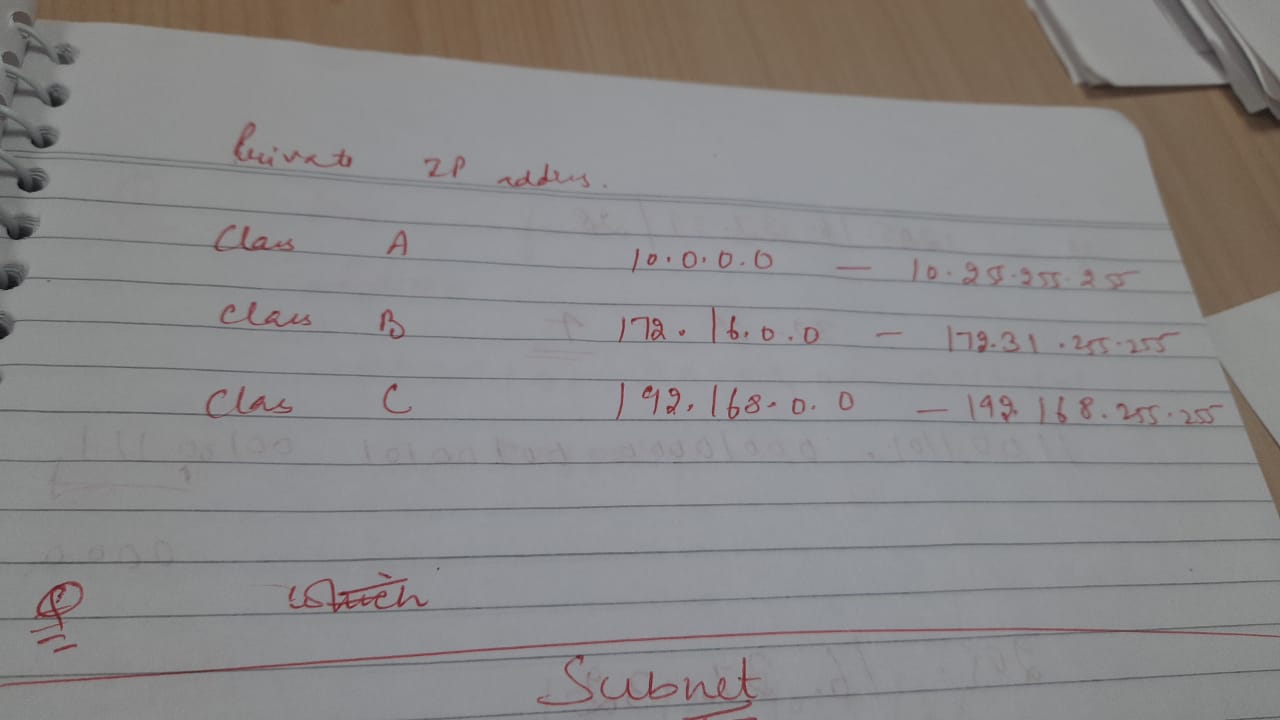 Private IP address.
Class A 10.0.0.0 — 10.25.255.255
Class B 172.16.0.0 — 172.31.255.255
Clas C 192.168.0.0 — 192.168.255.255
Q which
Subnet